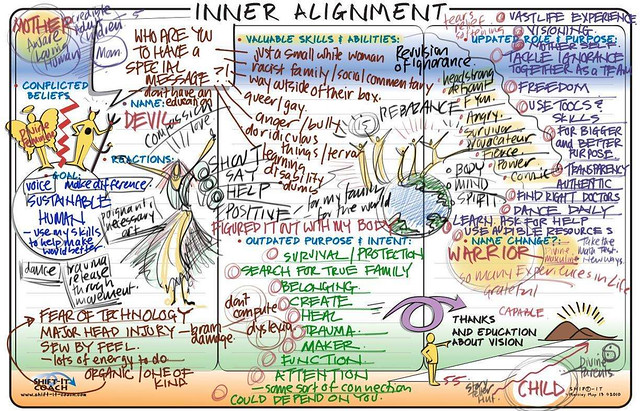 INNER ALIGNMENT
MOTHER
children
Aware
Human
Mom
WHO ARE YOU
TO HAVE A
SPECIAL
MESSAGE ?!
don't have an
education
CONFLICTED
BELIEFS
Divine
Feminine
NAME:
DEVIL
compassion
love
REACTIONS:
GOAL:
voice make difference.
SUSTAINABLE
HUMAN
- use my skills
to help make
world better
dance
trauma
release
through
movement.
poignant
necessary
art
FEAR OF TECHNOLOGY
MAJOR HEAD INJURY - brain
damage.
SEW BY FEEL.
- lots of energy to do
ORGANIC / ONE OF
KIND
SHIFT-IT
COACH
www.shift-it-coach.com
VALUABLE SKILLS & ABILITIES:
just a small white woman
racist family / social commentary
way outside of their box.
queer/gay
anger / bully
do ridiculous
things / terror
learning
disability
dumb
SHOUT
SAY
HELP
POSITIVE / for my family
for the world
FIGURED IT OUT WITH MY BODY
OUTDATED PURPOSE & INTENT:
SURVIVAL / PROTECTION
SEARCH FOR TRUE FAMILY
BELONGING
CREATE
HEAL
TRAUMA
MAKER
FUNCTION
ATTENTION
- some sort of connection
COULD DEPEND ON YOU.
don't
compute
dyslexia
Revulsion
of ignorance.
headstrong
defiant
F you.
Angry
Survivor
Provocateur
Fierce
Power
- connie
BODY
MIND
SPIRIT
UPDATED ROLE & PURPOSE:
VAST LIFE EXPERIENCE
VISIONING
MOTHER SELF
TACKLE IGNORANCE
TOGETHER AS A TEAM
FREEDOM
USE TOOLS &
SKILLS
FOR BIGGER
AND BETTER
PURPOSE
TRANSPARENCY
AUTHENTIC
FIND RIGHT DOCTORS
DANCE DAILY
LEARN, ASK FOR HELP
USE AUDIBLE RESOURCES
NAME CHANGE?:
WARRIOR
Divine
Masculine
Take the
New ways.
so many Experiences in Life
Grateful
CAPABLE
THANKS
AND EDUCATION
ABOUT VISION
Divine
Parents
CHILD
55
SHIFT-IT